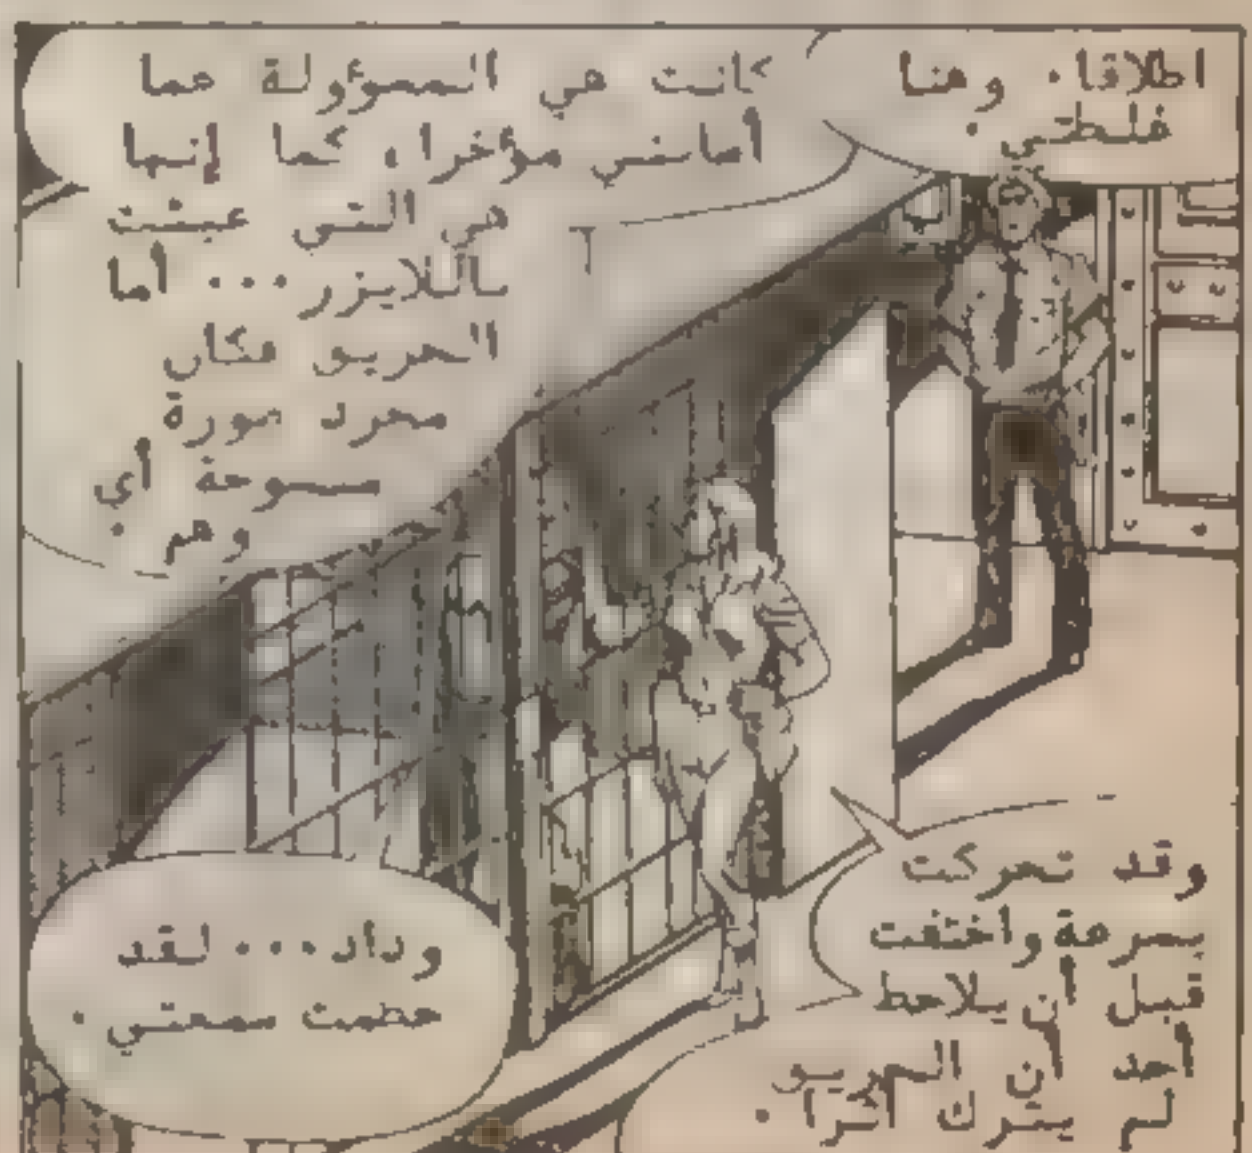 اطلاقا. وهنا
غلطتي.
كانت هي المسؤولة عما
أصابني مؤخرا، كما إنها
هي التي عبثت
بالليزر... أما
الحريق فكان
مجرد صورة
أي
وهم.
وقد تحركت
بسرعة واختفت
قبل أن يلاحظ
أحد أن الحريق
لم يترك أثرا.
وداد... لقد
حطمت سمعتي.